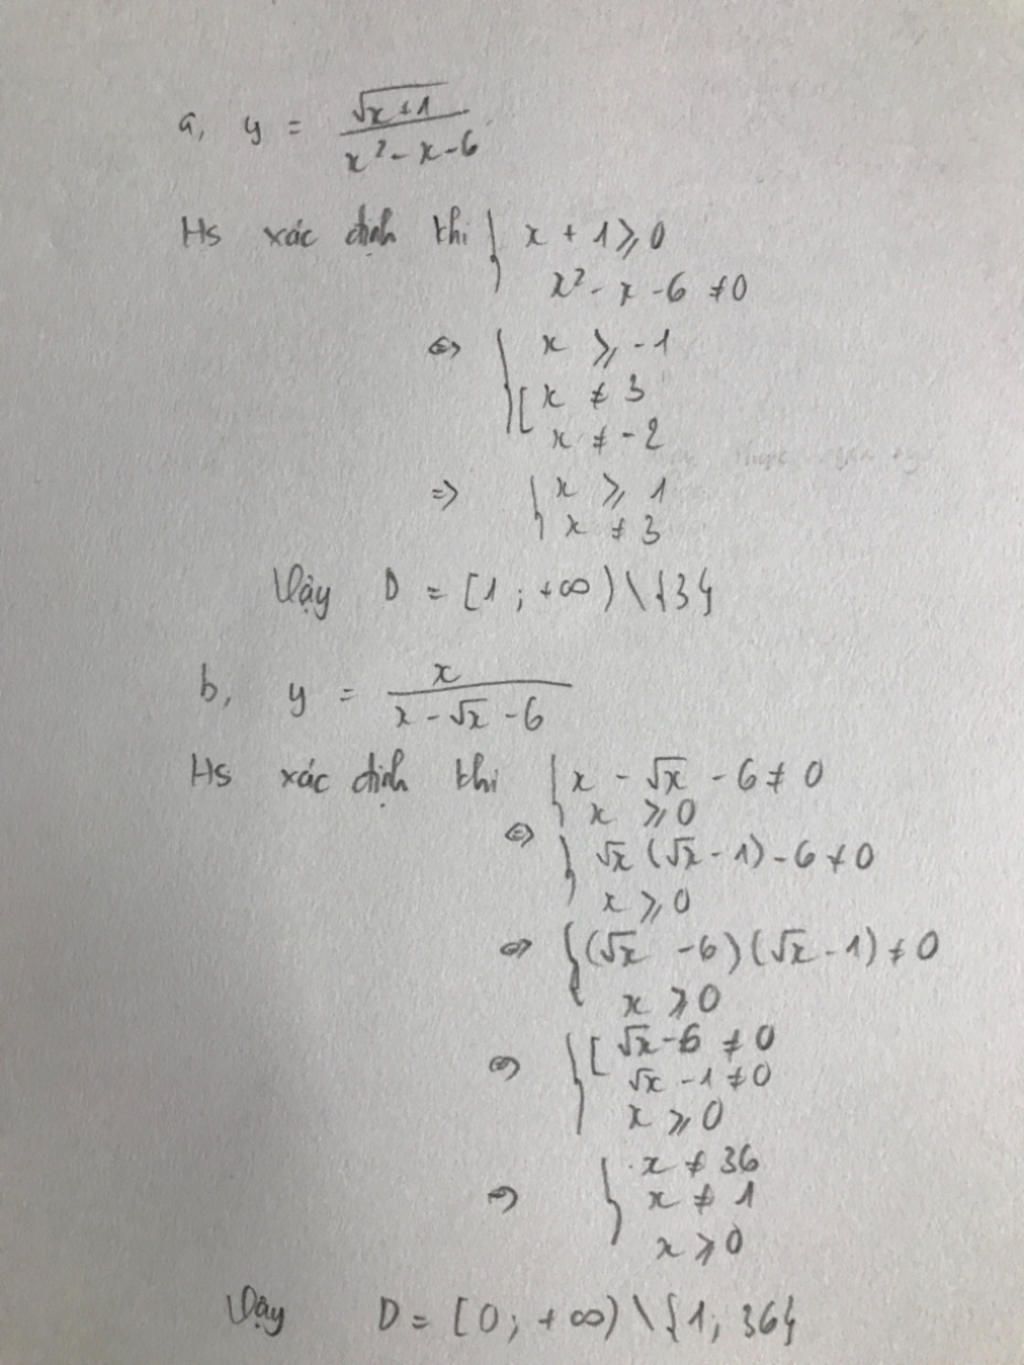 a, y = \frac{\sqrt{x+1}}{x² - x - 6}
Hs xác định khi { x + 1 ⩾ 0
x² - x - 6 ≠ 0
⇔ { x ⩾ -1
[ x ≠ 3
x ≠ -2
=> { x ⩾ 1
x ≠ 3
Vậy D = [1 ; +∞) \ {3}
b, y = \frac{x}{x - \sqrt{x} - 6}
Hs xác định khi { x - √x - 6 ≠ 0
x ⩾ 0
⇔ { √x (√x - 1) - 6 ≠ 0
x ⩾ 0
⇔ { (√x - 6) (√x - 1) ≠ 0
x ⩾ 0
⇔ { [ √x - 6 ≠ 0
√x - 1 ≠ 0
x ⩾ 0
⇔ { x ≠ 36
x ≠ 1
x ⩾ 0
Vậy D = [0 ; +∞) \ {1; 36}